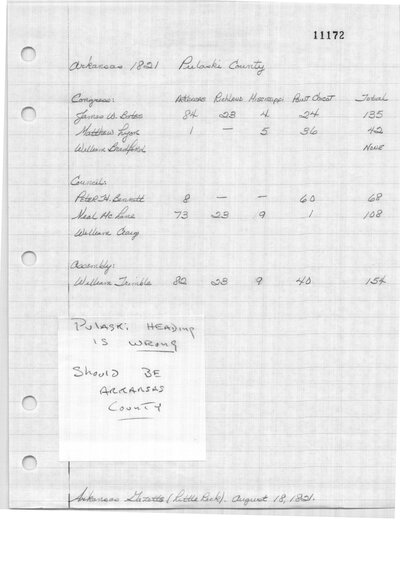 11172
Arkansas 1821 Pulaski County
Congress: Arkansas Richland Mississippi Point Chicot Total
James W. Bates 84 23 4 24 135
Matthew Lyon 1 — 5 36 42
William Bradford NONE
Council:
Peter H. Bennett 8 — — 60 68
Neal McLane 73 23 9 1 108
William Craig
Assembly:
William Trimble 82 23 9 40 154
PULASKI HEADING
IS WRONG
SHOULD BE
ARKANSAS
COUNTY
Arkansas Gazette (Little Rock). August 18, 1821.